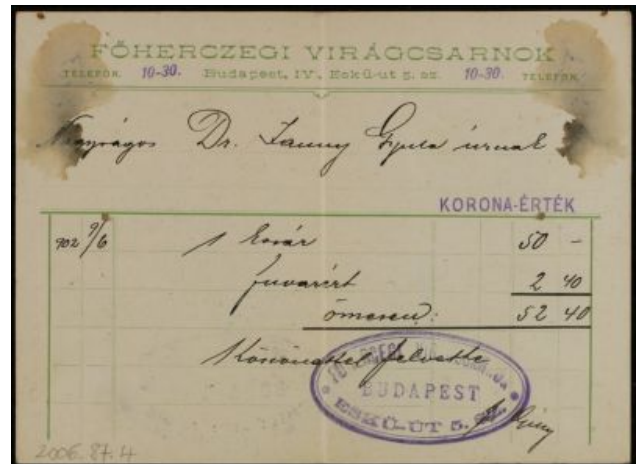 FŐHERCZEGI VIRÁGCSARNOK
TELEFON. 10-30. Budapest, IV., Eskü-ut 5. sz. 10-30. TELEFON.
Dr. Gyula úrnak
KORONA-ÉRTÉK
902 9/6 1 kosár 50 -
fuvarért 2 40
52 40
Köszönettel felvette
BUDAPEST
ESKÜ-ÚT 5.
2006.87.4